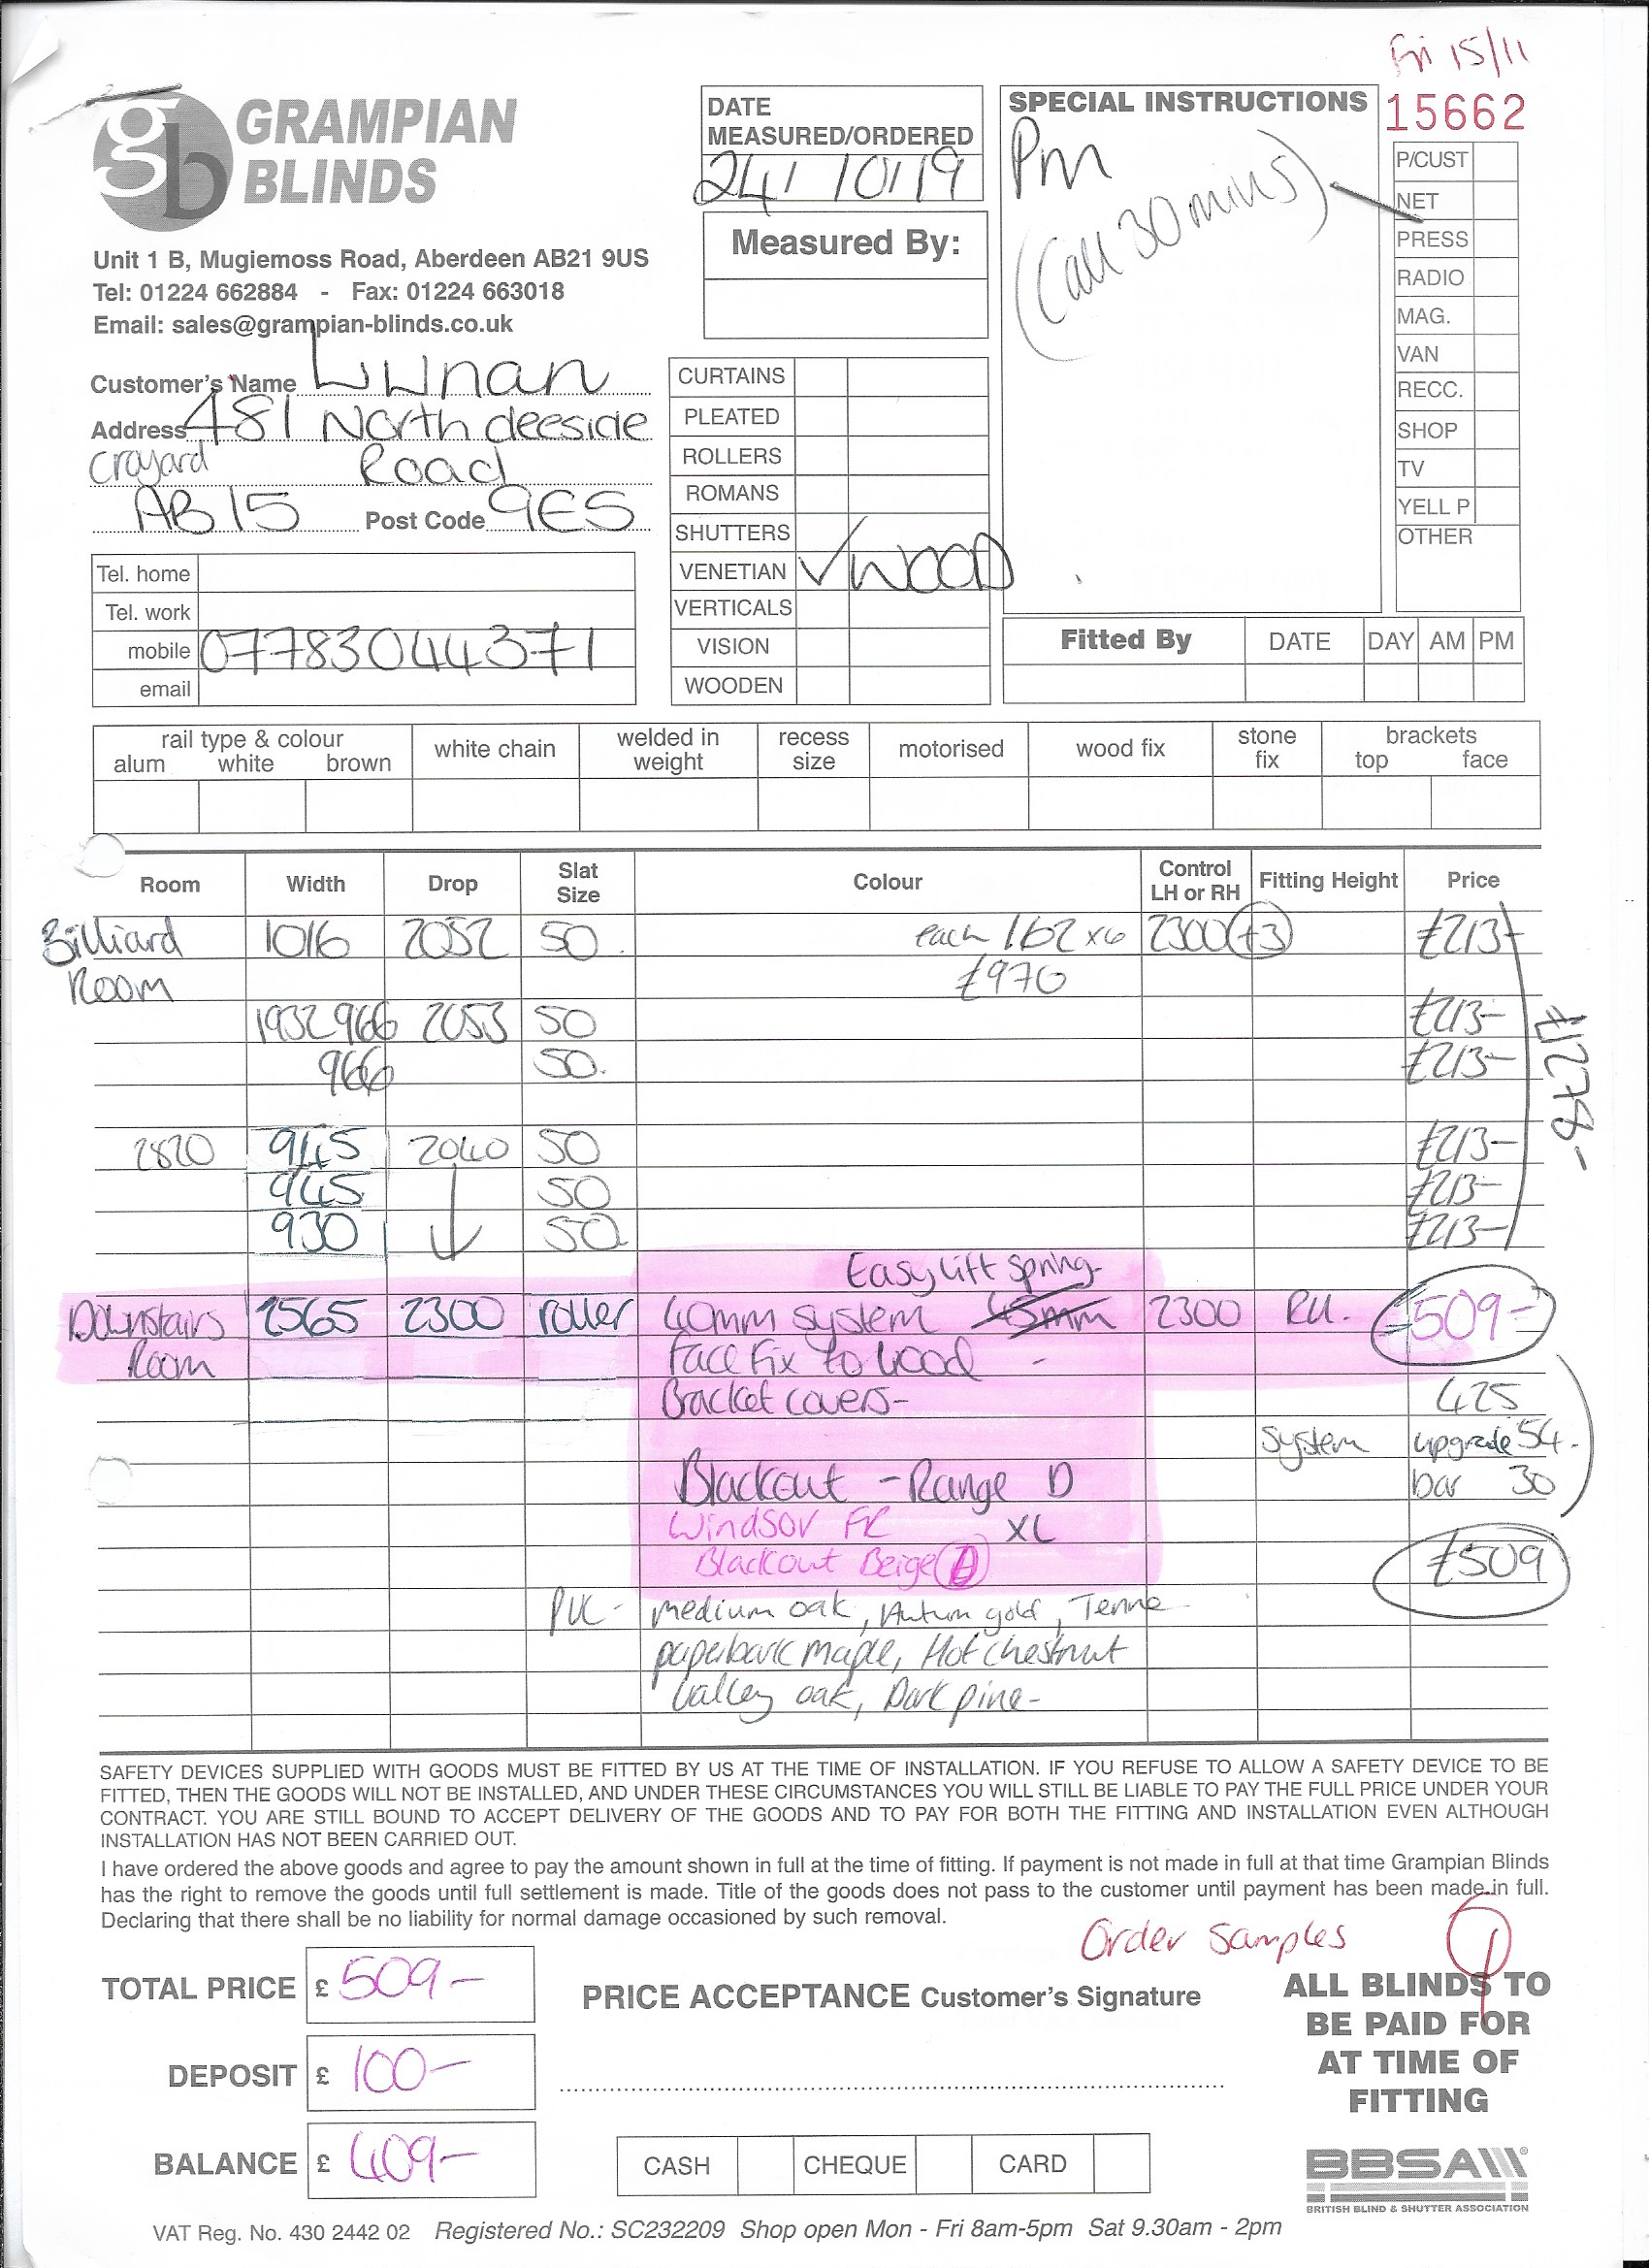 Fri 15/11
GRAMPIAN
BLINDS
Unit 1 B, Mugiemoss Road, Aberdeen AB21 9US
Tel: 01224 662884 - Fax: 01224 663018
Email: sales@grampian-blinds.co.uk
DATE
MEASURED/ORDERED
24/10/19
Measured By:
SPECIAL INSTRUCTIONS
Pm
(Call 30 mins)
15662
P/CUST
NET
PRESS
RADIO
MAG.
VAN
RECC.
SHOP
TV
YELL P
OTHER
Customer's Name
Address 481 North deeside
Road
AB15 Post Code 9ES
Tel. home
Tel. work
mobile 07783044371
email
CURTAINS
PLEATED
ROLLERS
ROMANS
SHUTTERS
VENETIAN ✓ WOOD
VERTICALS
VISION
WOODEN
Fitted By DATE DAY AM PM
rail type & colour
alum white brown
white chain
welded in weight
recess size
motorised
wood fix
stone fix
brackets
top face
Room Width Drop Slat Size Colour Control LH or RH Fitting Height Price
Billiard 1016 2052 50 each 162 x6 2300 +3 £213-
Room £970
1932 966 2053 50 £213-
966 50. £213-
£1278-
2820 945 2040 50 £213-
945 50 £213-
930 50 £213-
Easy lift spring
Downstairs 2565 2300 roller 40mm system 45mm 2300 509-
Room Face fix to wood -
Bracket covers- 425
system upgrade 54.
Blackout - Range D bar 30
Windsor FR XL
Blackout Beige D £509
PVC - medium oak, Autum gold, Tenne
paperbark maple, Hot chestnut
Valley oak, Dark pine-
SAFETY DEVICES SUPPLIED WITH GOODS MUST BE FITTED BY US AT THE TIME OF INSTALLATION. IF YOU REFUSE TO ALLOW A SAFETY DEVICE TO BE
FITTED, THEN THE GOODS WILL NOT BE INSTALLED, AND UNDER THESE CIRCUMSTANCES YOU WILL STILL BE LIABLE TO PAY THE FULL PRICE UNDER YOUR
CONTRACT. YOU ARE STILL BOUND TO ACCEPT DELIVERY OF THE GOODS AND TO PAY FOR BOTH THE FITTING AND INSTALLATION EVEN ALTHOUGH
INSTALLATION HAS NOT BEEN CARRIED OUT.
I have ordered the above goods and agree to pay the amount shown in full at the time of fitting. If payment is not made in full at that time Grampian Blinds
has the right to remove the goods until full settlement is made. Title of the goods does not pass to the customer until payment has been made in full.
Declaring that there shall be no liability for normal damage occasioned by such removal.
Order Samples
TOTAL PRICE £ 509-
DEPOSIT £ 100-
BALANCE £ 409-
PRICE ACCEPTANCE Customer's Signature
CASH CHEQUE CARD
ALL BLINDS TO
BE PAID FOR
AT TIME OF
FITTING
BBSA
BRITISH BLIND & SHUTTER ASSOCIATION
VAT Reg. No. 430 2442 02 Registered No.: SC232209 Shop open Mon - Fri 8am-5pm Sat 9.30am - 2pm